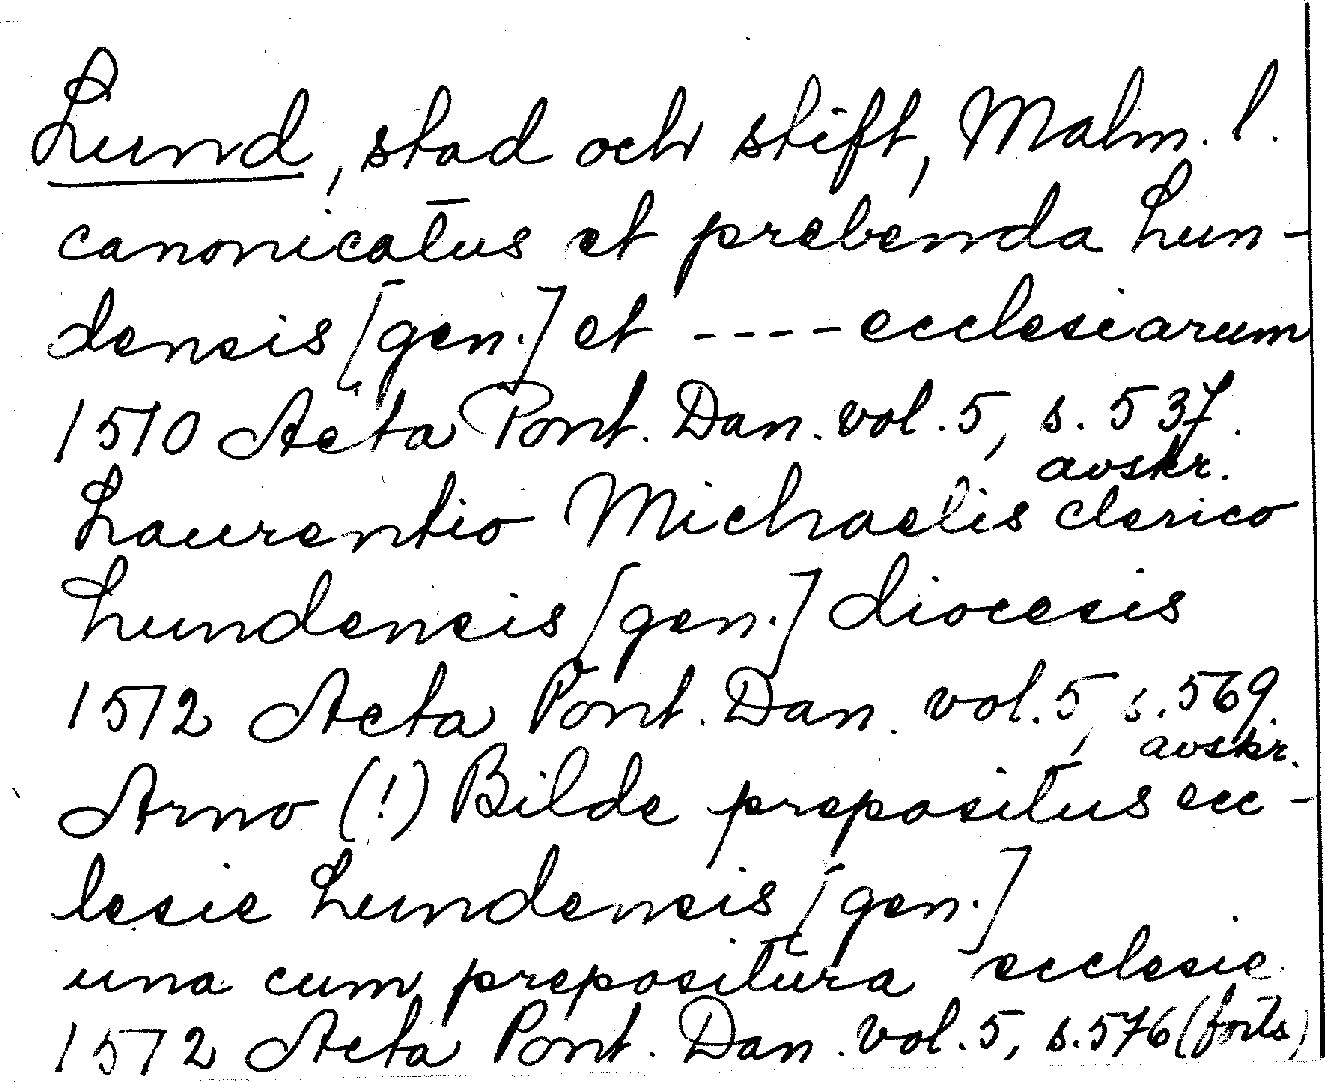 Lund, stad och stift, Malm. l.
canonicatus et prebenda Lun-
densis [gen.] et ---- ecclesiarum
1510 Acta Pont. Dan. vol. 5, s. 537.
avskr.
Laurentio Michaelis clerico
Lundensis [gen.] diocesis
1512 Acta Pont. Dan. vol. 5, s. 569.
avskr.
Arno (!) Bilde prepositus ecc-
lesie Lundensis [gen.]
una cum prepositura ecclesie
1512 Acta Pont. Dan. vol. 5, s. 576 (forts)